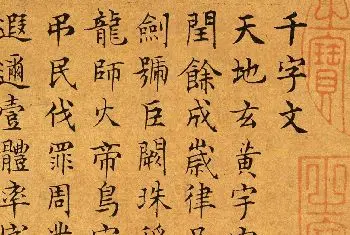 千字文
天地玄黄宇
閏餘成歲律
劍號巨闕珠稱
龍師火帝鳥官
吊民伐罪周
遐邇壹體率賓